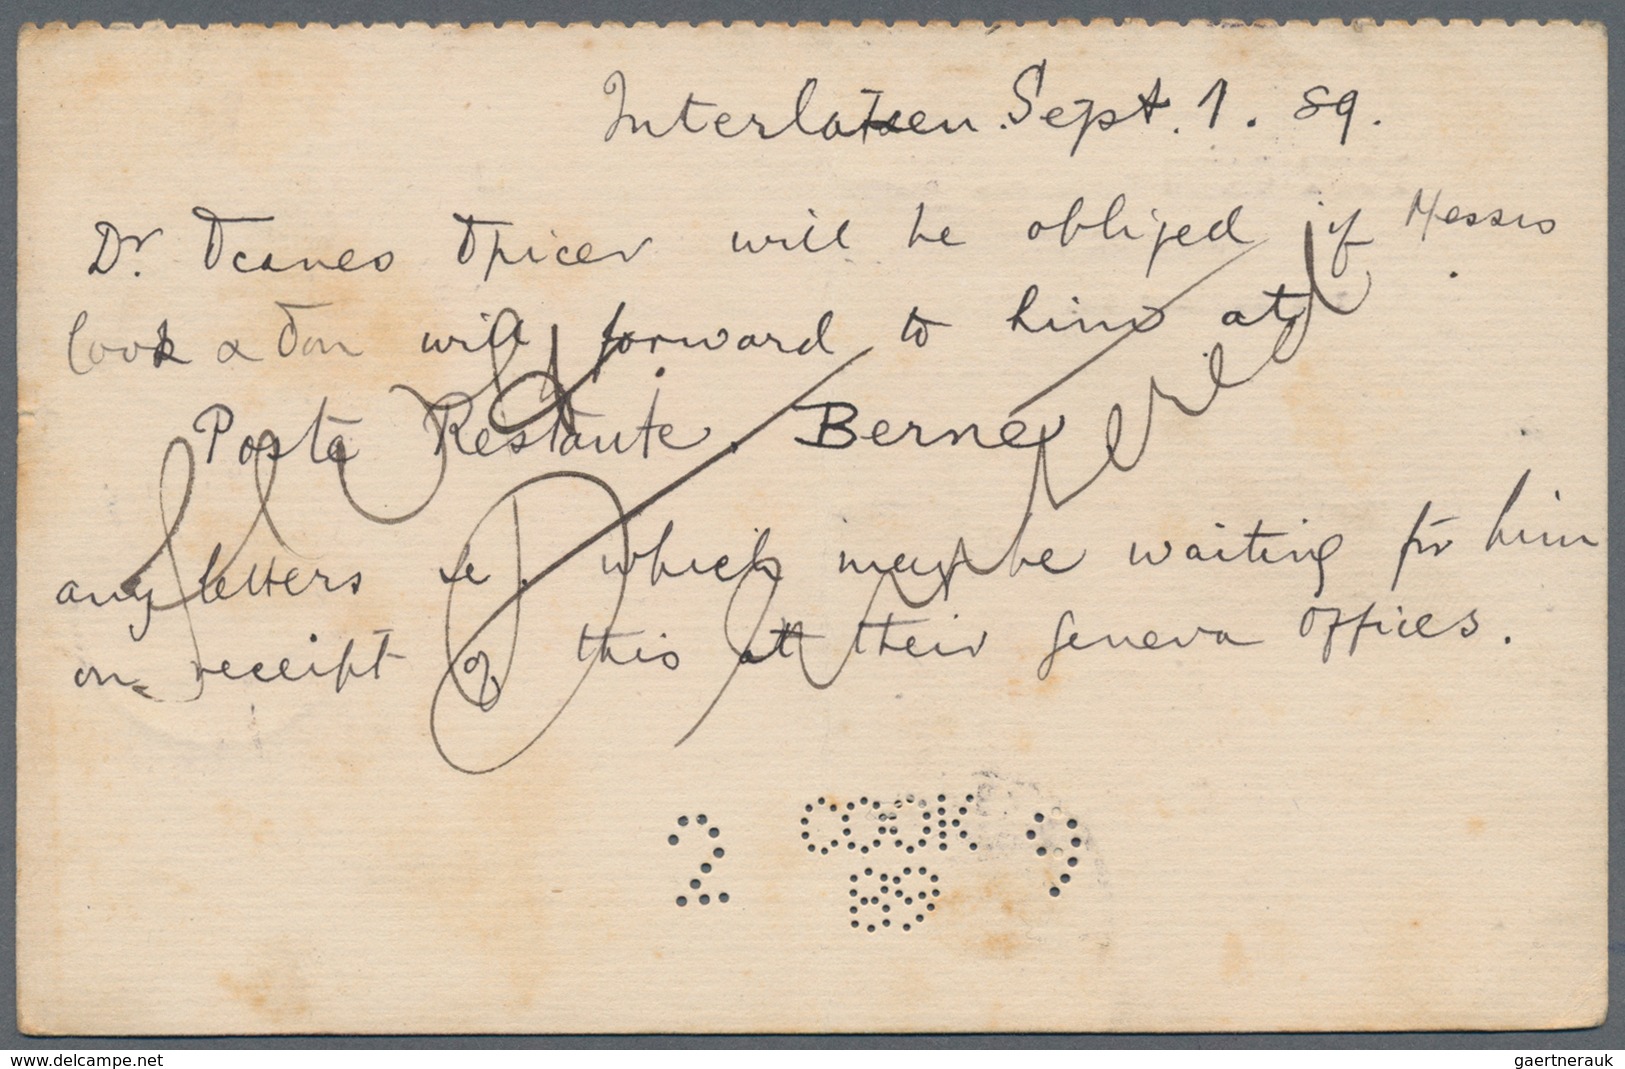 Interlaken. Sept. 1. 89.
Dr. Scanes Spicer will be obliged if Messrs
Cook & Son will forward to him at
Poste Restante. Berne
any letters &c. which may be waiting for him
on receipt of this at their Geneva offices.
2 COOK 9
89
www.delcampe.net
gaertnerauk